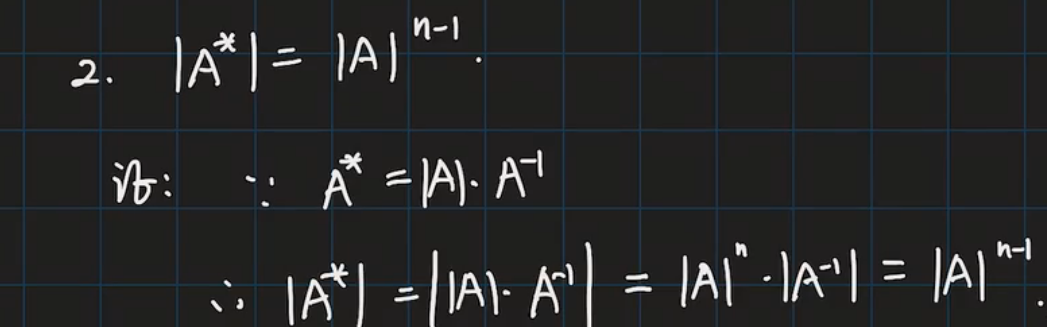 2. |A*| = |A|ⁿ⁻¹.
证: ∵ A* = |A|·A⁻¹
∴ |A*| = ||A|·A⁻¹| = |A|ⁿ·|A⁻¹| = |A|ⁿ⁻¹.